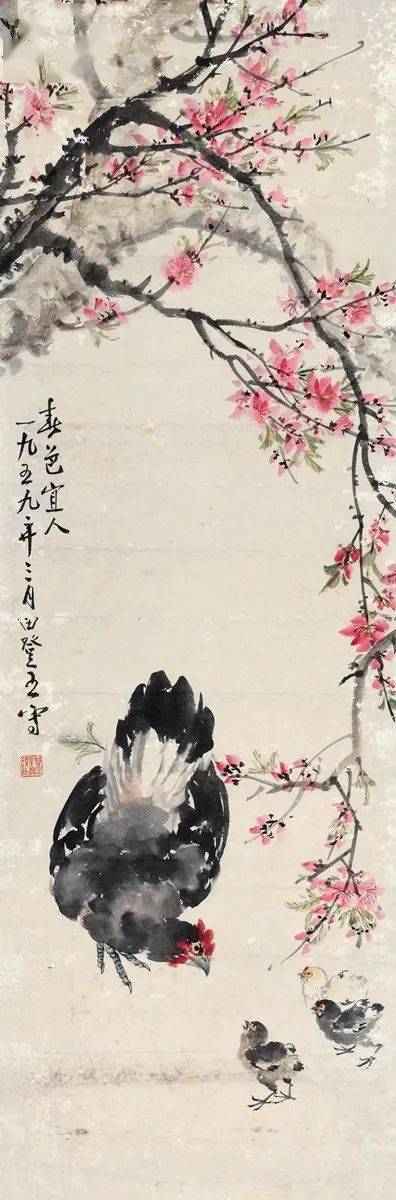 春色宜人
一九五九年三月田登五写